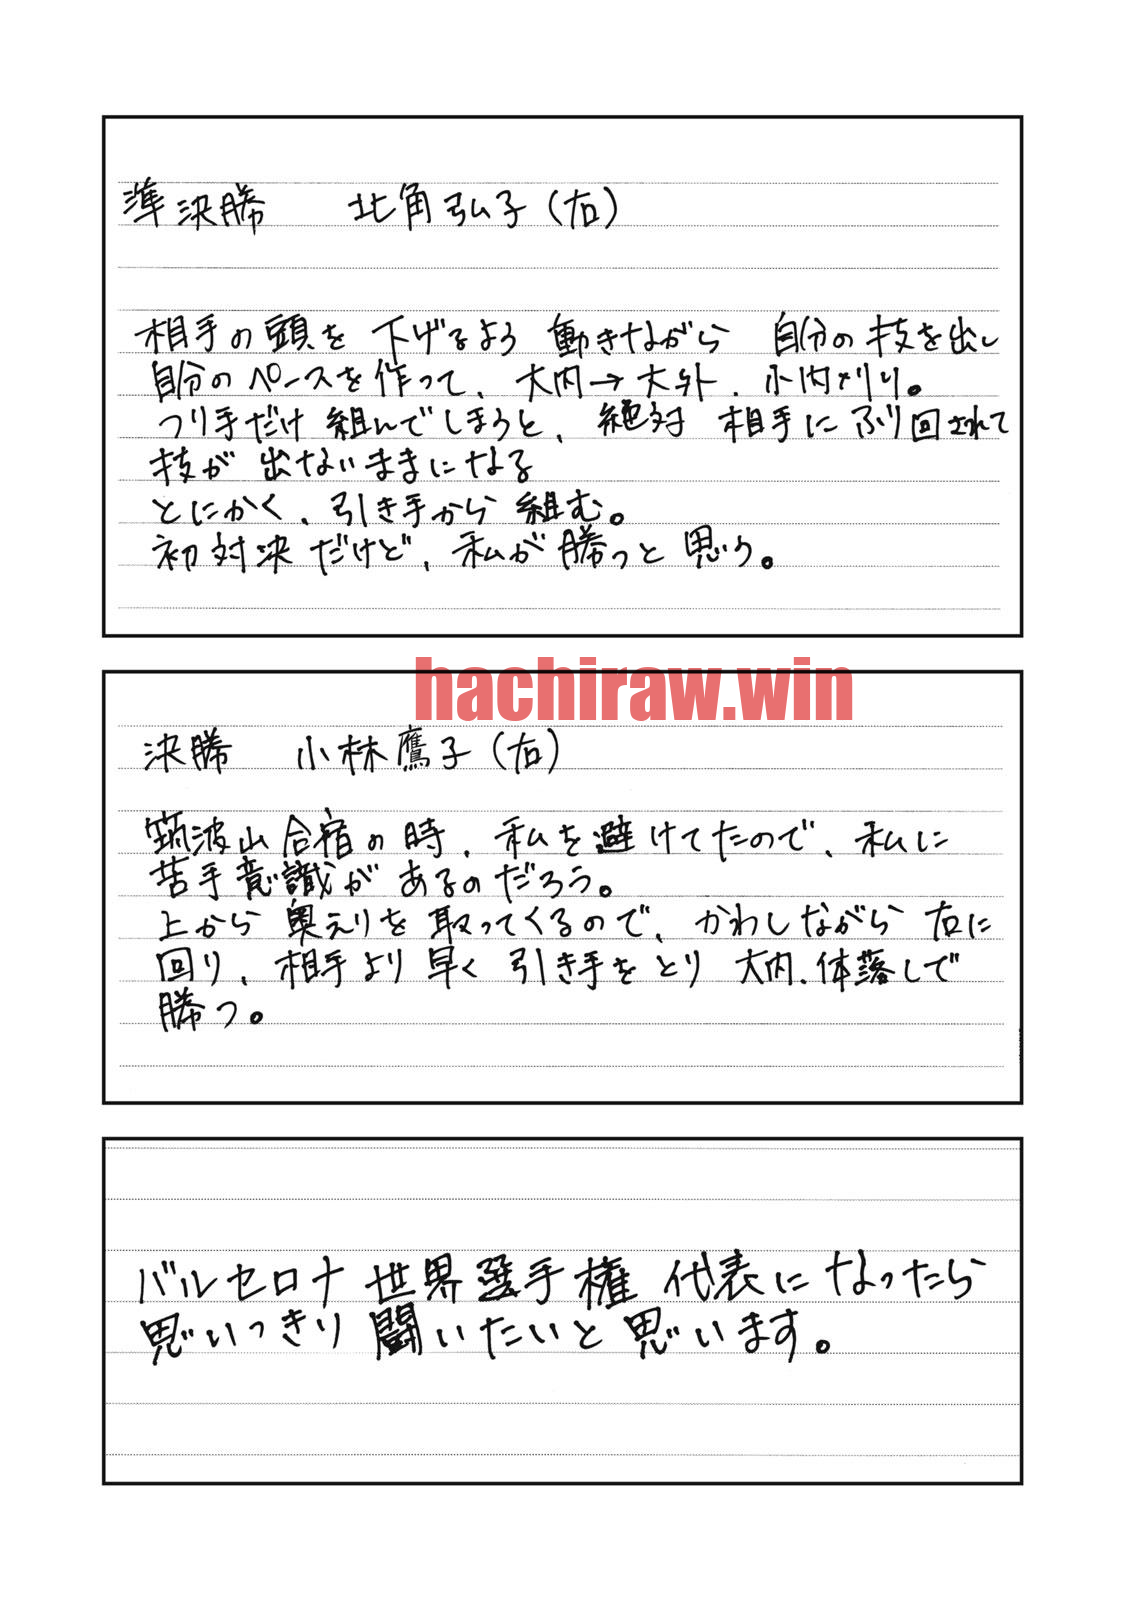 準決勝　北角弘子(右)
相手の頭を下げるよう動きながら 自分の技を出し
自分のペースを作って、大内→大外、小内刈り。
つり手だけ組んでしまうと、絶対 相手にふり回されて
技が出ないままになる
とにかく、引き手から組む。
初対決だけど、私が勝つと思う。
hachiraw.win
決勝　小林鷹子(右)
筑波山合宿の時、私を避けてたので、私に
苦手意識があるのだろう。
上から奥えりを取ってくるので、かわしながら右に
回り、相手より早く引き手をとり 大内、体落しで
勝つ。
バルセロナ世界選手権代表になったら
思いっきり闘いたいと思います。